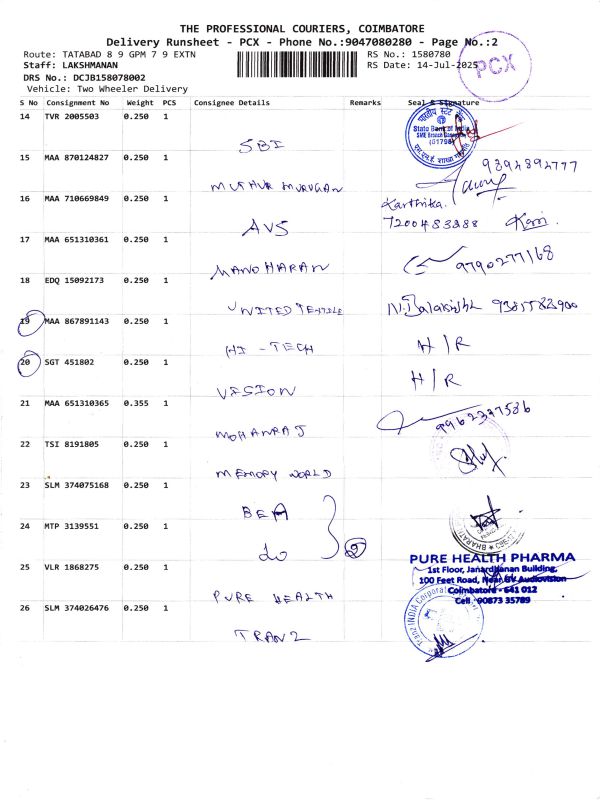 THE PROFESSIONAL COURIERS, COIMBATORE
Delivery Runsheet - PCX - Phone No.:9047080280 - Page No.:2
Route: TATABAD 8 9 GPM 7 9 EXTN RS No.: 1580780
Staff: LAKSHMANAN RS Date: 14-Jul-2025
PCX
DRS No.: DCJB158078002
Vehicle: Two Wheeler Delivery
S No Consignment No Weight PCS Consignee Details Remarks Seal & Signature
14 TVR 2005503 0.250 1
SBI
भारतीय स्टेट बैंक
State Bank of India
SME Branch Coimbatore
(01798)
15 MAA 870124827 0.250 1
MUTHUR MURUGAN
9392892777
16 MAA 710669849 0.250 1
AVS
Karthika.
7200483288
17 MAA 651310361 0.250 1
MANOHARAN
9790277168
18 EDQ 15092173 0.250 1
UNITED TEXTILE
19 MAA 867891143 0.250 1
HI - TECH
H/R
20 SGT 451802 0.250 1
VESION
H/R
21 MAA 651310365 0.355 1
MOHANRAJ
9962337586
22 TSI 8191805 0.250 1
MEMORY WORLD
23 SLM 374075168 0.250 1
BEA
24 MTP 3139551 0.250 1
Do
2
25 VLR 1868275 0.250 1
PURE HEALTH
PURE HEALTH PHARMA
1st Floor, Janardhanan Building,
100 Feet Road, Near GV Audiovision
Coimbatore - 641 012
Cell 90873 35789
26 SLM 374026476 0.250 1
TRANZ